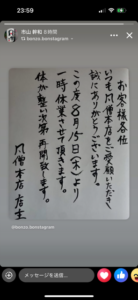 23:59
市山 幹和 8時間
bonzo.bonstagram
お客様各位
いつも凡僧本店をご愛顧いただき
誠にありがとうございます。
この度8月15日(木)より
一時休業させて頂きます。
体が整い次第再開致します。
凡僧本店 店主
@bonzo.bonstagram
メッセージを送信...